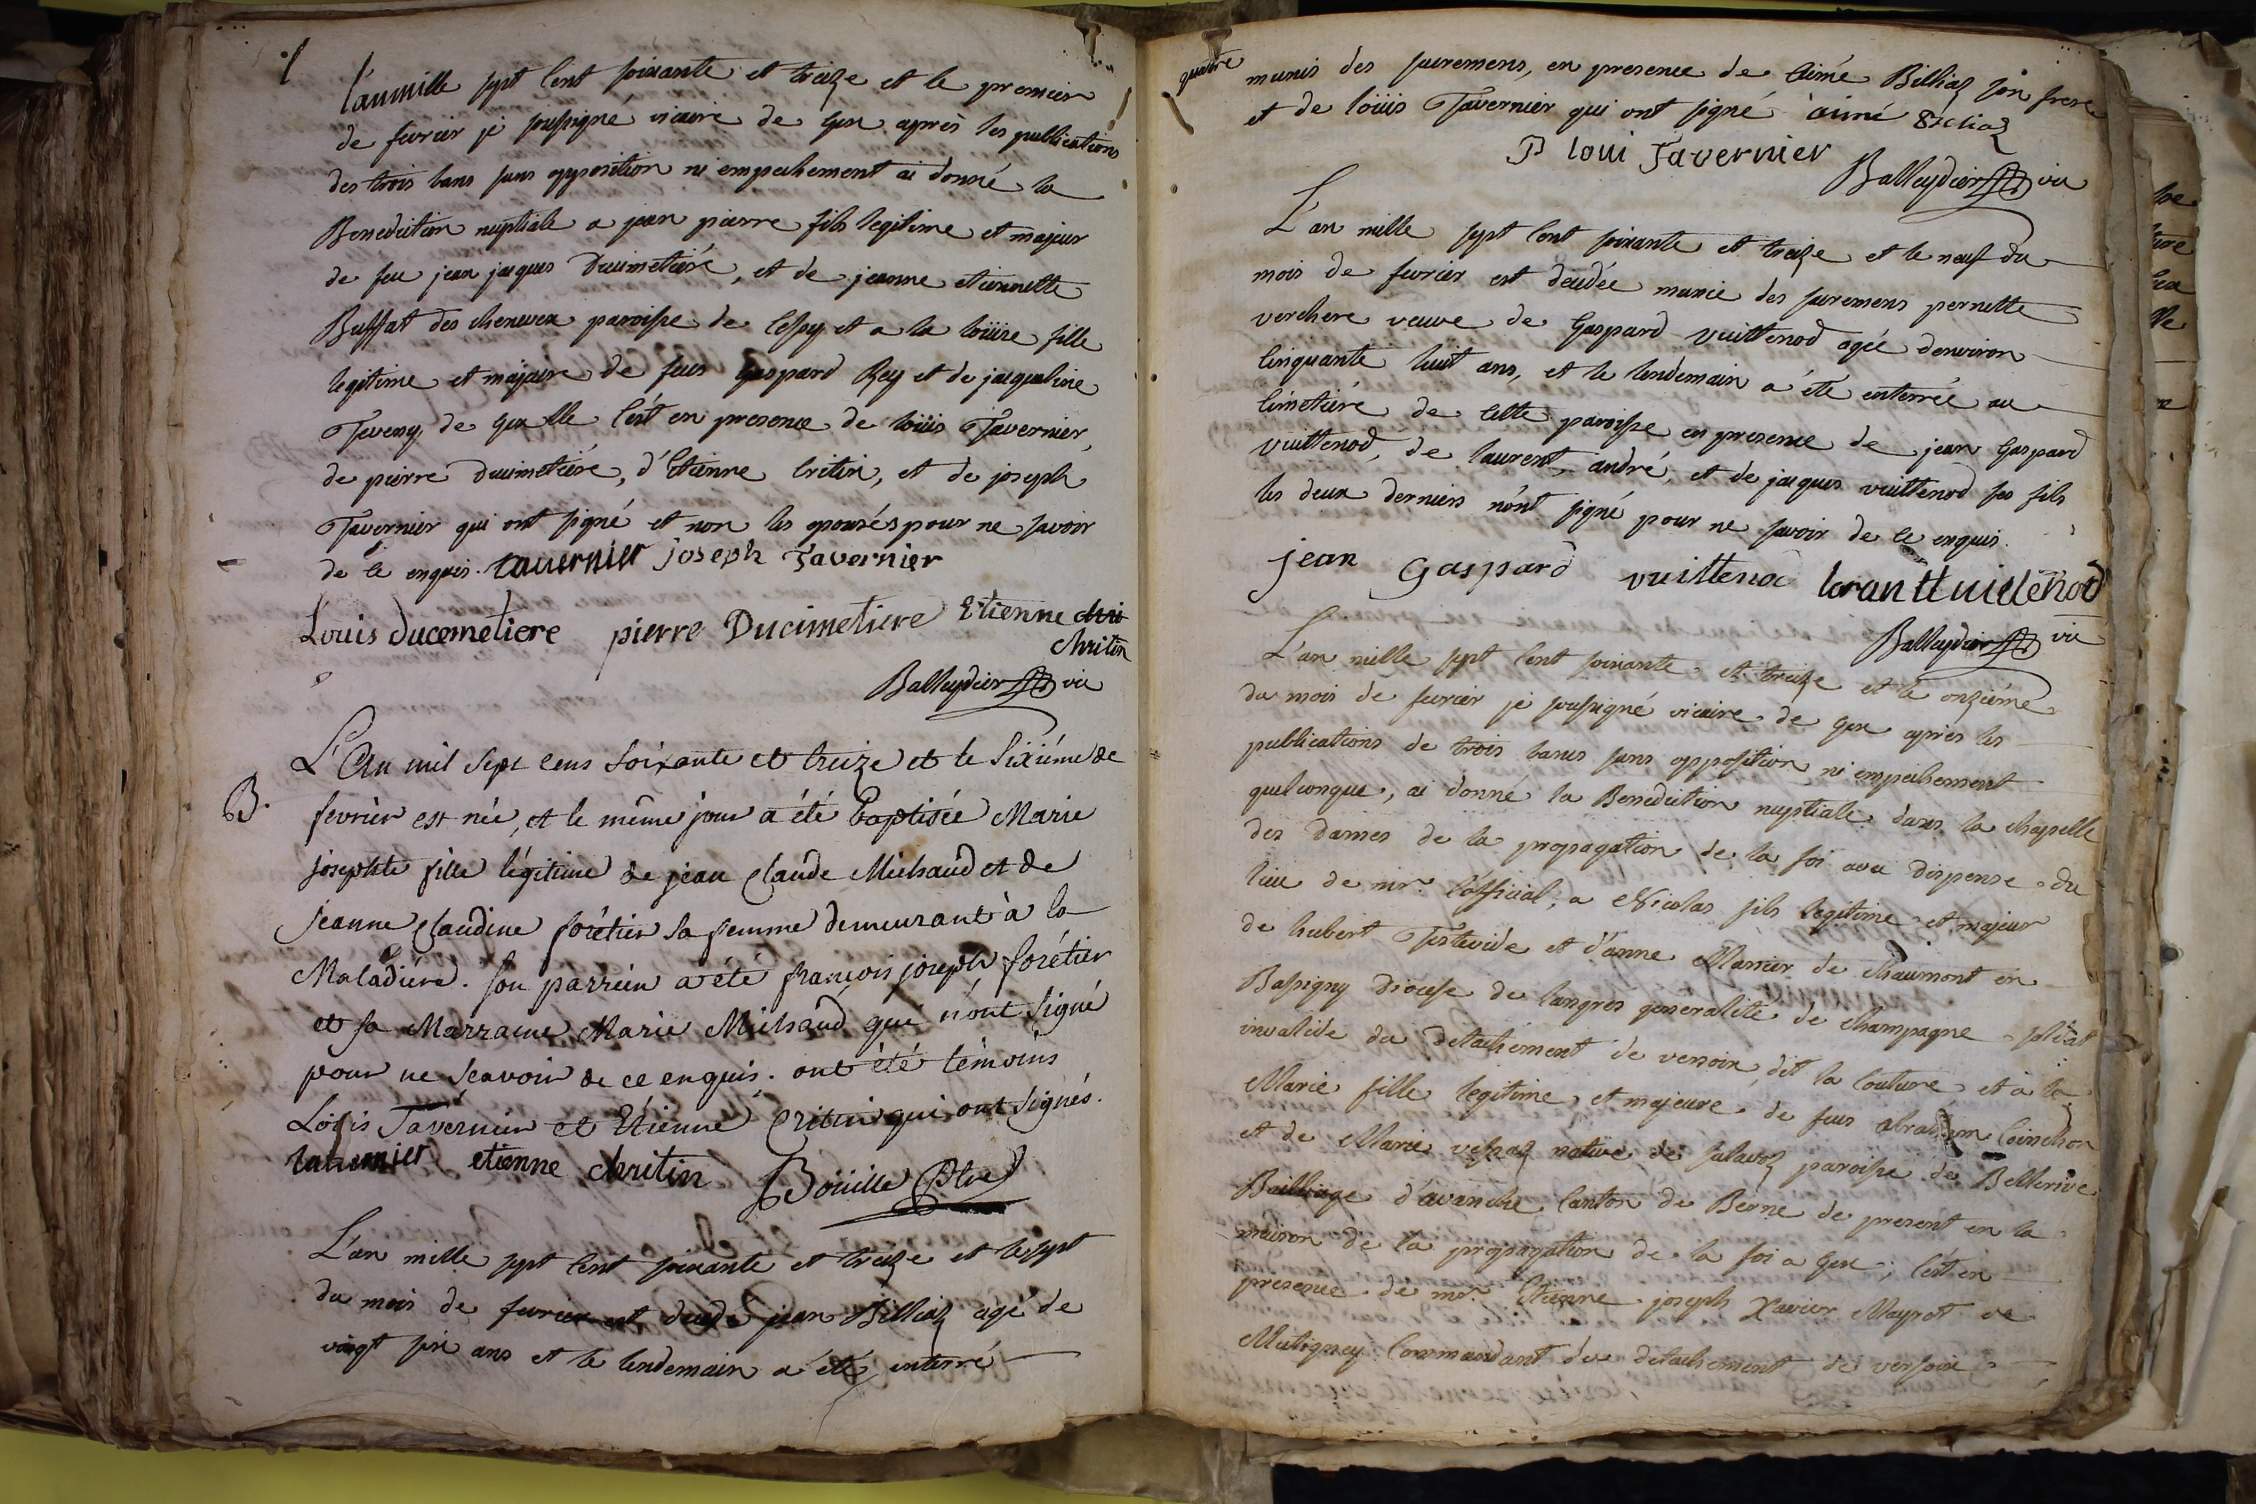 L'an mille sept cent soixante et treize et le premier
de fevrier je soussigné vicaire de Gex après les publications
des trois bans sans opposition ni empechement ai donné la
Benediction nuptiale a jean pierre fils legitime et majeur
de feu jean jaques Ducimetiére, et de jeanne etiennette
Buffat des chenevex paroisse de Cessy et a la loüise fille
legitime et majeure de feus Gaspard Rey et de jaqueline
Taveny de Gex le C'est en presence de loüis Tavernier,
de pierre Ducimetiére, d'Etienne Critin, et de joseph
Tavernier qui ont signé et non les epousés pour ne savoir
de ce enquis. tavernier joseph Tavernier
Louis ducemetiere pierre Ducimetiere Etienne chri
chritin
Balleydier vic
L'An mil Sept cens Soixante et treize et le Sixiéme de
B. fevrièr est née, et le même jour a été Baptisée Marie
josephte fille légitime de jean Claude Michaud et de
jeanne Claudine forétier sa femme demeurant à la
Maladiére. Son parrein a été françois joseph forétier
et sa Marraine Marie Michaud qui n'ont Signé
pour ne Sçavoir de ce enquis. ont été témoins
Loüis Tavernier et Etienne Critin qui ont Signés.
tavernier etienne chritin Boüille Ptre
L'an mille sept cent soixante et treize et le sept
du mois de fevrier est decedé jean Billiaz agé de
vingt six ans et le lendemain a été enterré
quatre
munis des sacremens, en presence de Aimé Billiaz son frere
et de loüis Tavernier qui ont signé aimé Billiaz
P loui Tavernier
Balleydier vic
L'an mille sept cent soixante et treize et le neuf du
mois de fevrier est decedée munie des sacremens pernette
verchere veuve de Gaspard vuittenod agée d'environ
Cinquante huit ans, et le lendemain a été enterrée au
Cimetiére de cette paroisse en presence de jean Gaspard
vuittenod, de laurent, andré, et de jaques vuittenod ses fils
les deux derniers n'ont signé pour ne savoir de ce enquis.
jean Gaspard vuittenod loran Huitenod
Balleydier vic
L'an mille sept cent soixante et treize et le onziéme
du mois de fevrier je soussigné vicaire de Gex après les
publications de trois bancs sans opposition ni empechement
quelconque, ai donné la Benediction nuptiale dans la chapelle
des Dames de la propagation de la foi avec Dispense du
lieu de mr. l'official, a Nicolas fils legitime et majeur
de hubert Tetevide et d'anne Marrier de chaumont en
Bassigny diocese de langres generalité de champagne soldat
invalide du detachement de versoix dit la Couture, et a la
Marie fille legitime et majeure de feus abraham Coinchon
et de Marie vessaz native de salavoz paroisse de Bellerive
Bailliage d'avanche Canton de Berne de present en la
maison de la propagation de la foi a Gex; C'est en
presence de mr. Etienne joseph Xavier Mayrot de
Mutigney Commandant du detachement de versoix